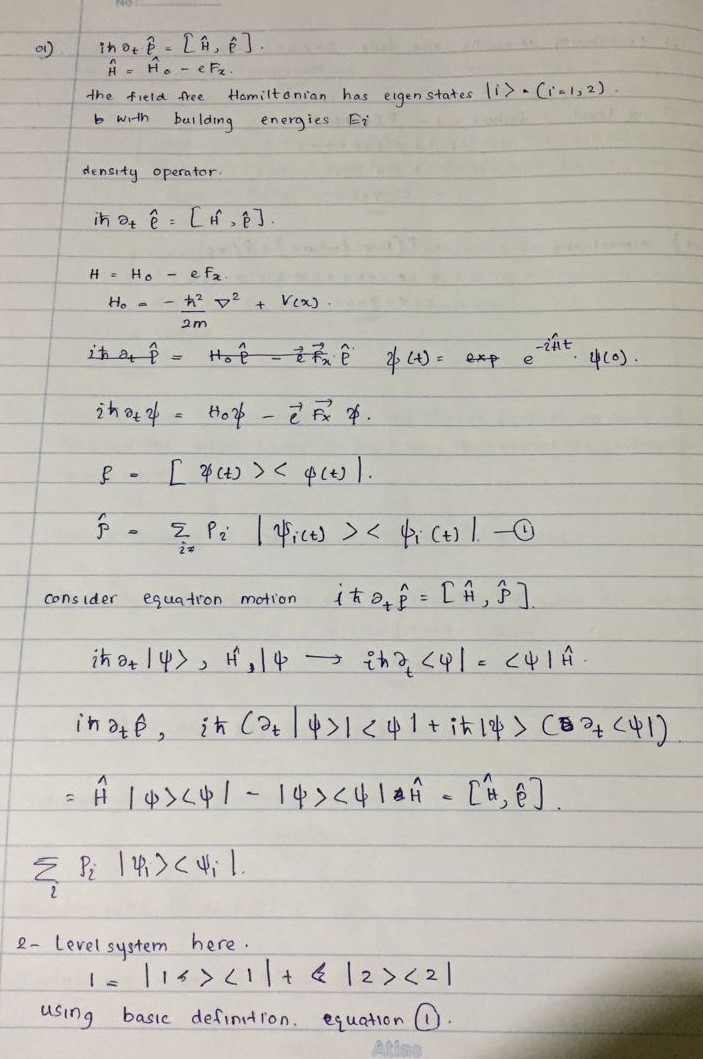 No:
01) iħ∂t ρ̂ = [Ĥ, ρ̂].
Ĥ = Ĥ₀ - eFx.
the field free Hamiltonian has eigen states |i> = (i=1,2).
b with building energies Ei
density operator.
iħ ∂t ρ̂ = [Ĥ, ρ̂].
H = H₀ - eFx.
H₀ = - ħ²/2m ∇² + V(x).
iħ ∂t ρ̂ = H₀ρ̂ - e⃗ F⃗x ρ̂ ψ(t) = exp e^-iĤt . ψ(0).
iħ∂tψ = H₀ψ - e⃗ F⃗x ψ.
ρ = [ ψ(t) > < ψ(t) |.
ρ̂ = Σi Pi | ψi(t) > < ψi (t) |. — ①
consider equation motion iħ∂t ρ̂ = [Ĥ, ρ̂].
iħ∂t |ψ>, Ĥ, |ψ → iħ∂t <ψ| = <ψ|Ĥ.
iħ∂tρ̂, iħ (∂t |ψ>| <ψ| + iħ|ψ> (∂t <ψ|)
= Ĥ |ψ><ψ| - |ψ><ψ|Ĥ = [Ĥ, ρ̂].
Σi Pi |ψi> <ψi|.
2- Level system here.
1 = |1> <1| + |2> <2|
using basic definition. equation ①.
Atlas